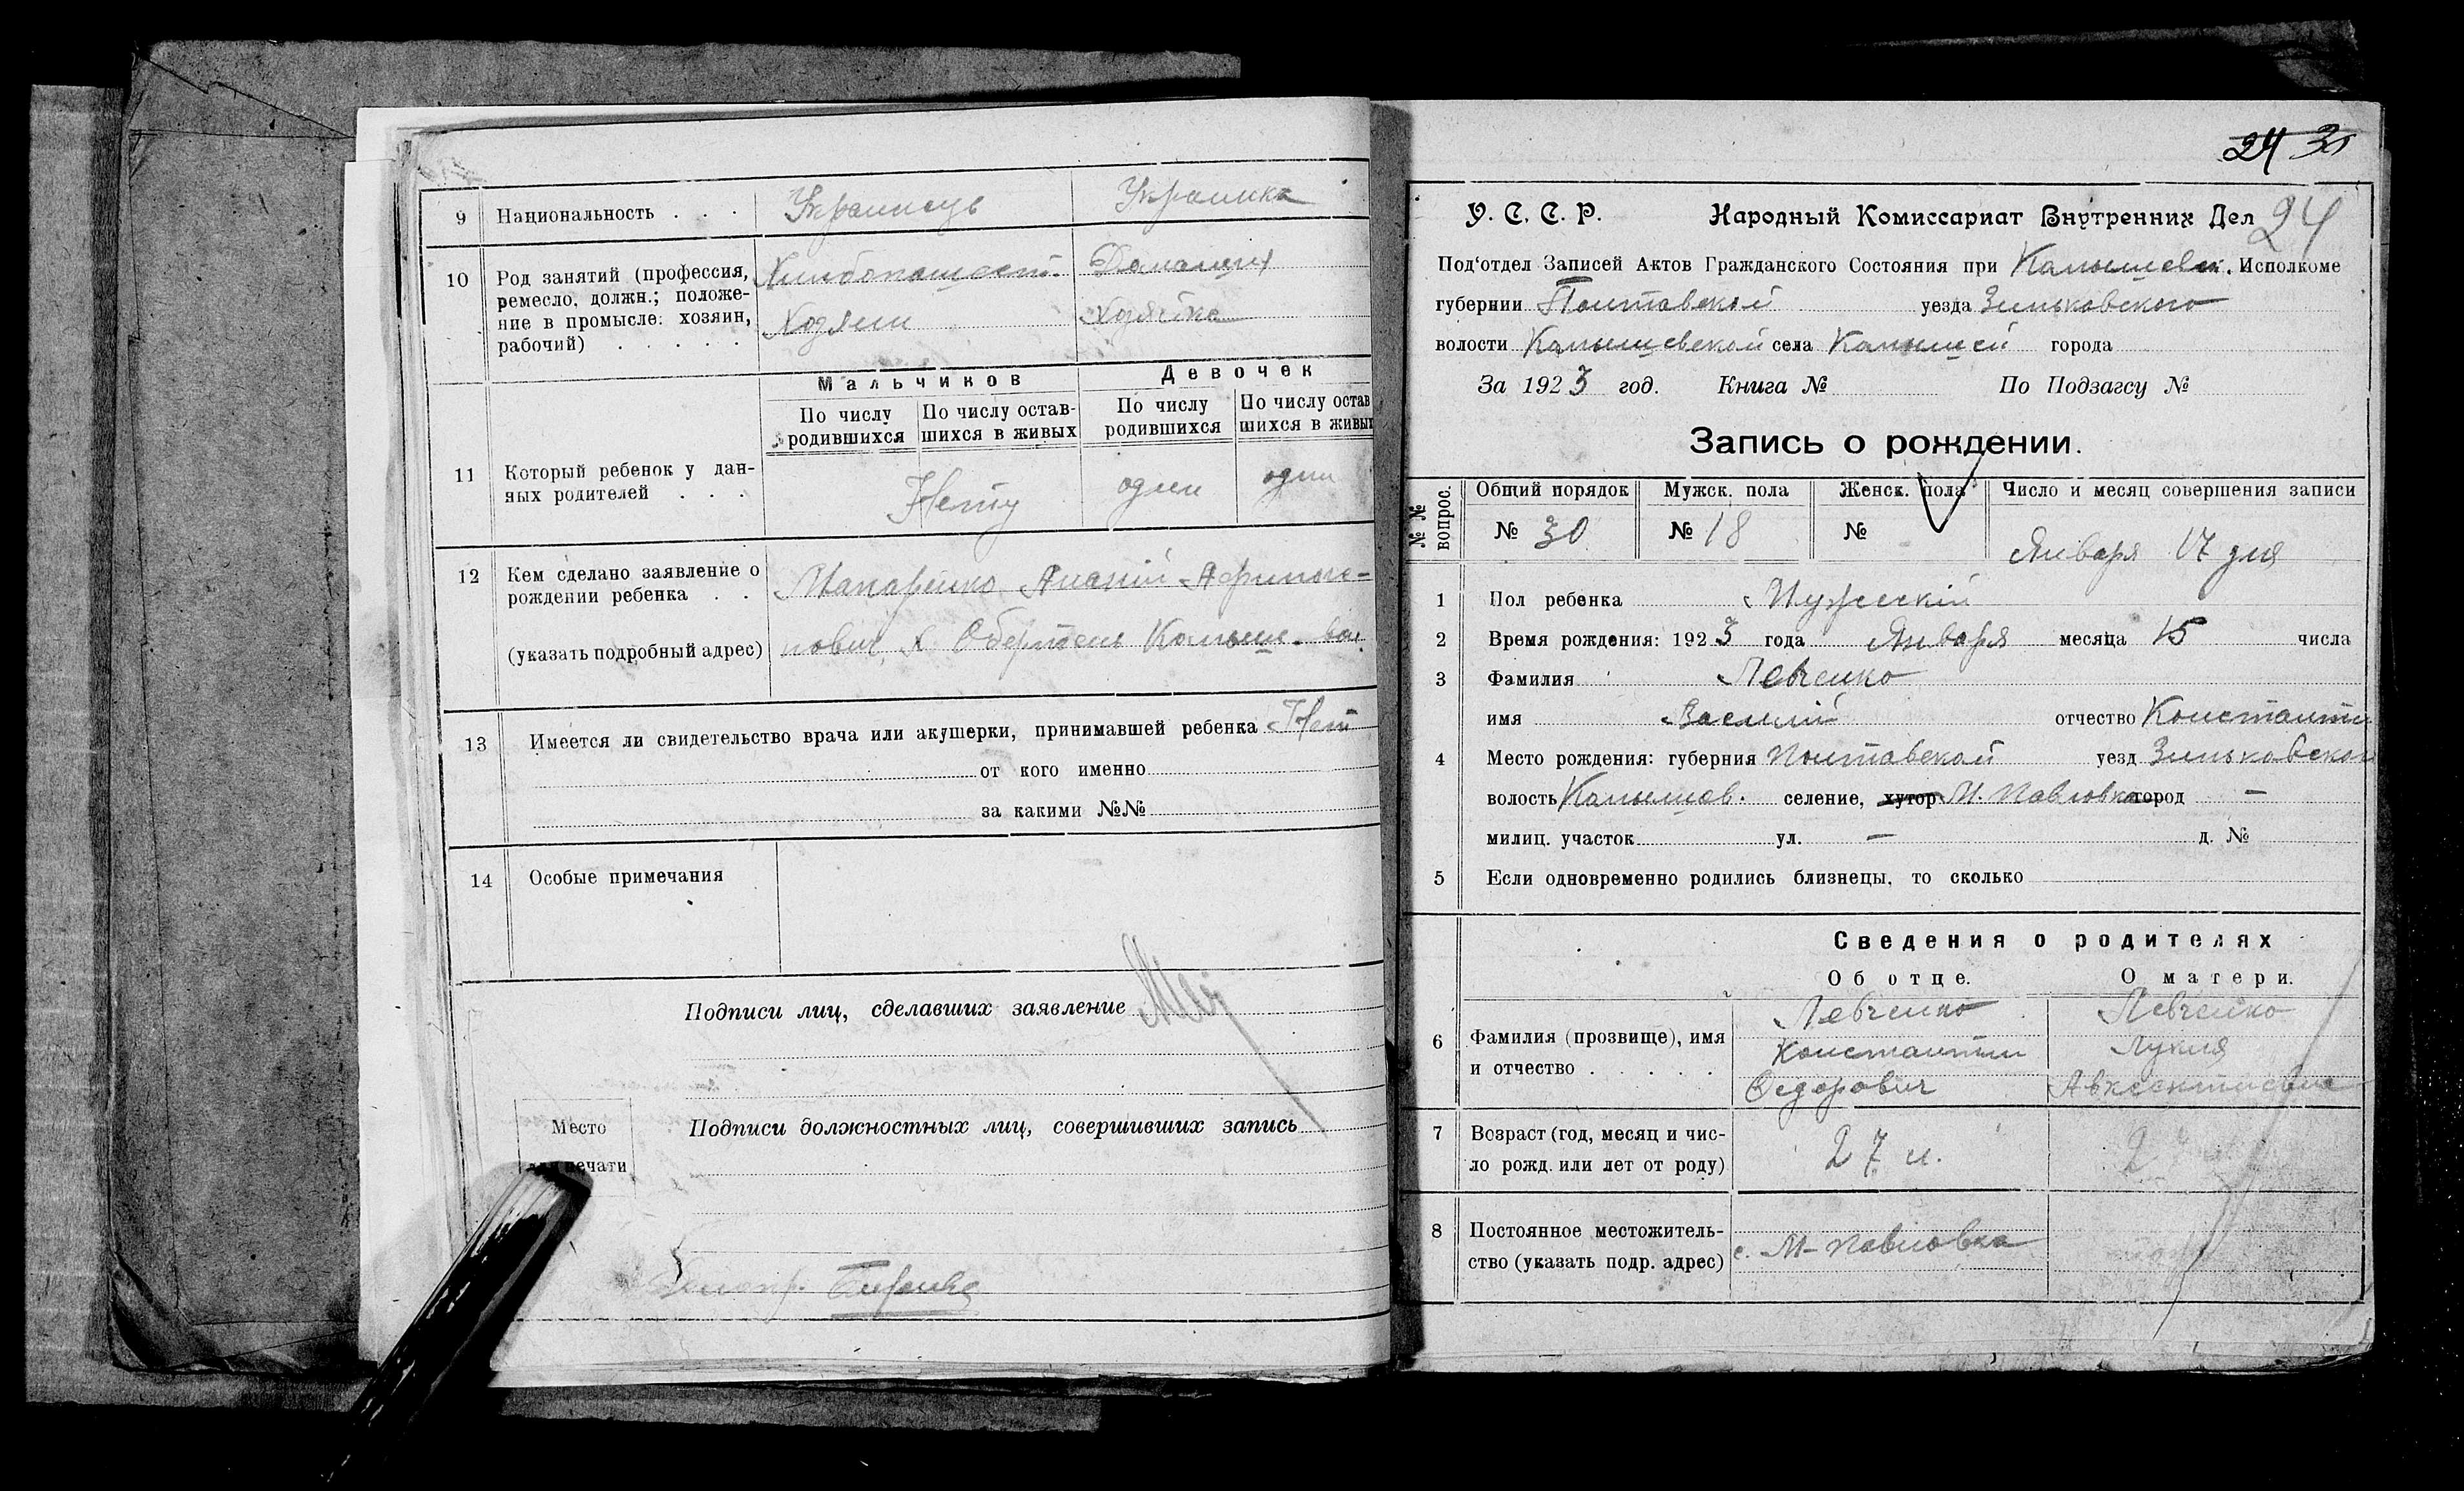 9 Национальность . . . Украинець Украинка
10 Род занятий (профессия, Хлибопашест. Домашних
ремесло, должн.; положе-
ние в промысле: хозяин, Хозяин Хозяйка
рабочий) . . . . .
Мальчиков Девочек
По числу родившихся По числу остав-шихся в живых По числу родившихся По числу остав шихся в живых
11 Который ребенок у дан-
ных родителей . . . Нету один один
12 Кем сделано заявление о
рождении ребенка . . Макаренко Ананий
(указать подробный адрес) нович, х. Обертень Камыш. вол.
13 Имеется ли свидетельство врача или акушерки, принимавшей ребенка Нет
от кого именно
за какими №№
14 Особые примечания
Подписи лиц, сделавших заявление
Подписи должностных лиц, совершивших запись
Место
печати
24 31
У. С. С. Р. Народный Комиссариат Внутренних Дел 24
Под'отдел Записей Актов Гражданского Состояния при Камышевск. Исполкоме
губернии Полтавской уезда Зиньковского
волости Камышевской села Камышей города
За 1923 год. Книга № По Подзагсу №
Запись о рождении.
№№ вопрос. Общий порядок Мужск. пола Женск. пола Число и месяц совершения записи
№ 30 № 18 № Января 17 дня
1 Пол ребенка Мужеский
2 Время рождения: 1923 года Января месяца 15 числа
3 Фамилия Левченко
имя Василий отчество Константи
4 Место рождения: губерния Полтавской уезд Зиньковского
волость Камышов. селение, хутор М. Павловка город —
милиц. участок ул. — д. №
5 Если одновременно родились близнецы, то сколько
Сведения о родителях
Об отце. О матери.
Левченко Левченко
6 Фамилия (прозвище), имя Константин Лукия
и отчество . . . . . Федорович Авксентиевна
7 Возраст (год, месяц и чис-
ло рожд. или лет от роду) 27 л.
8 Постоянное местожитель-
ство (указать подр. адрес) с. М-Павловка